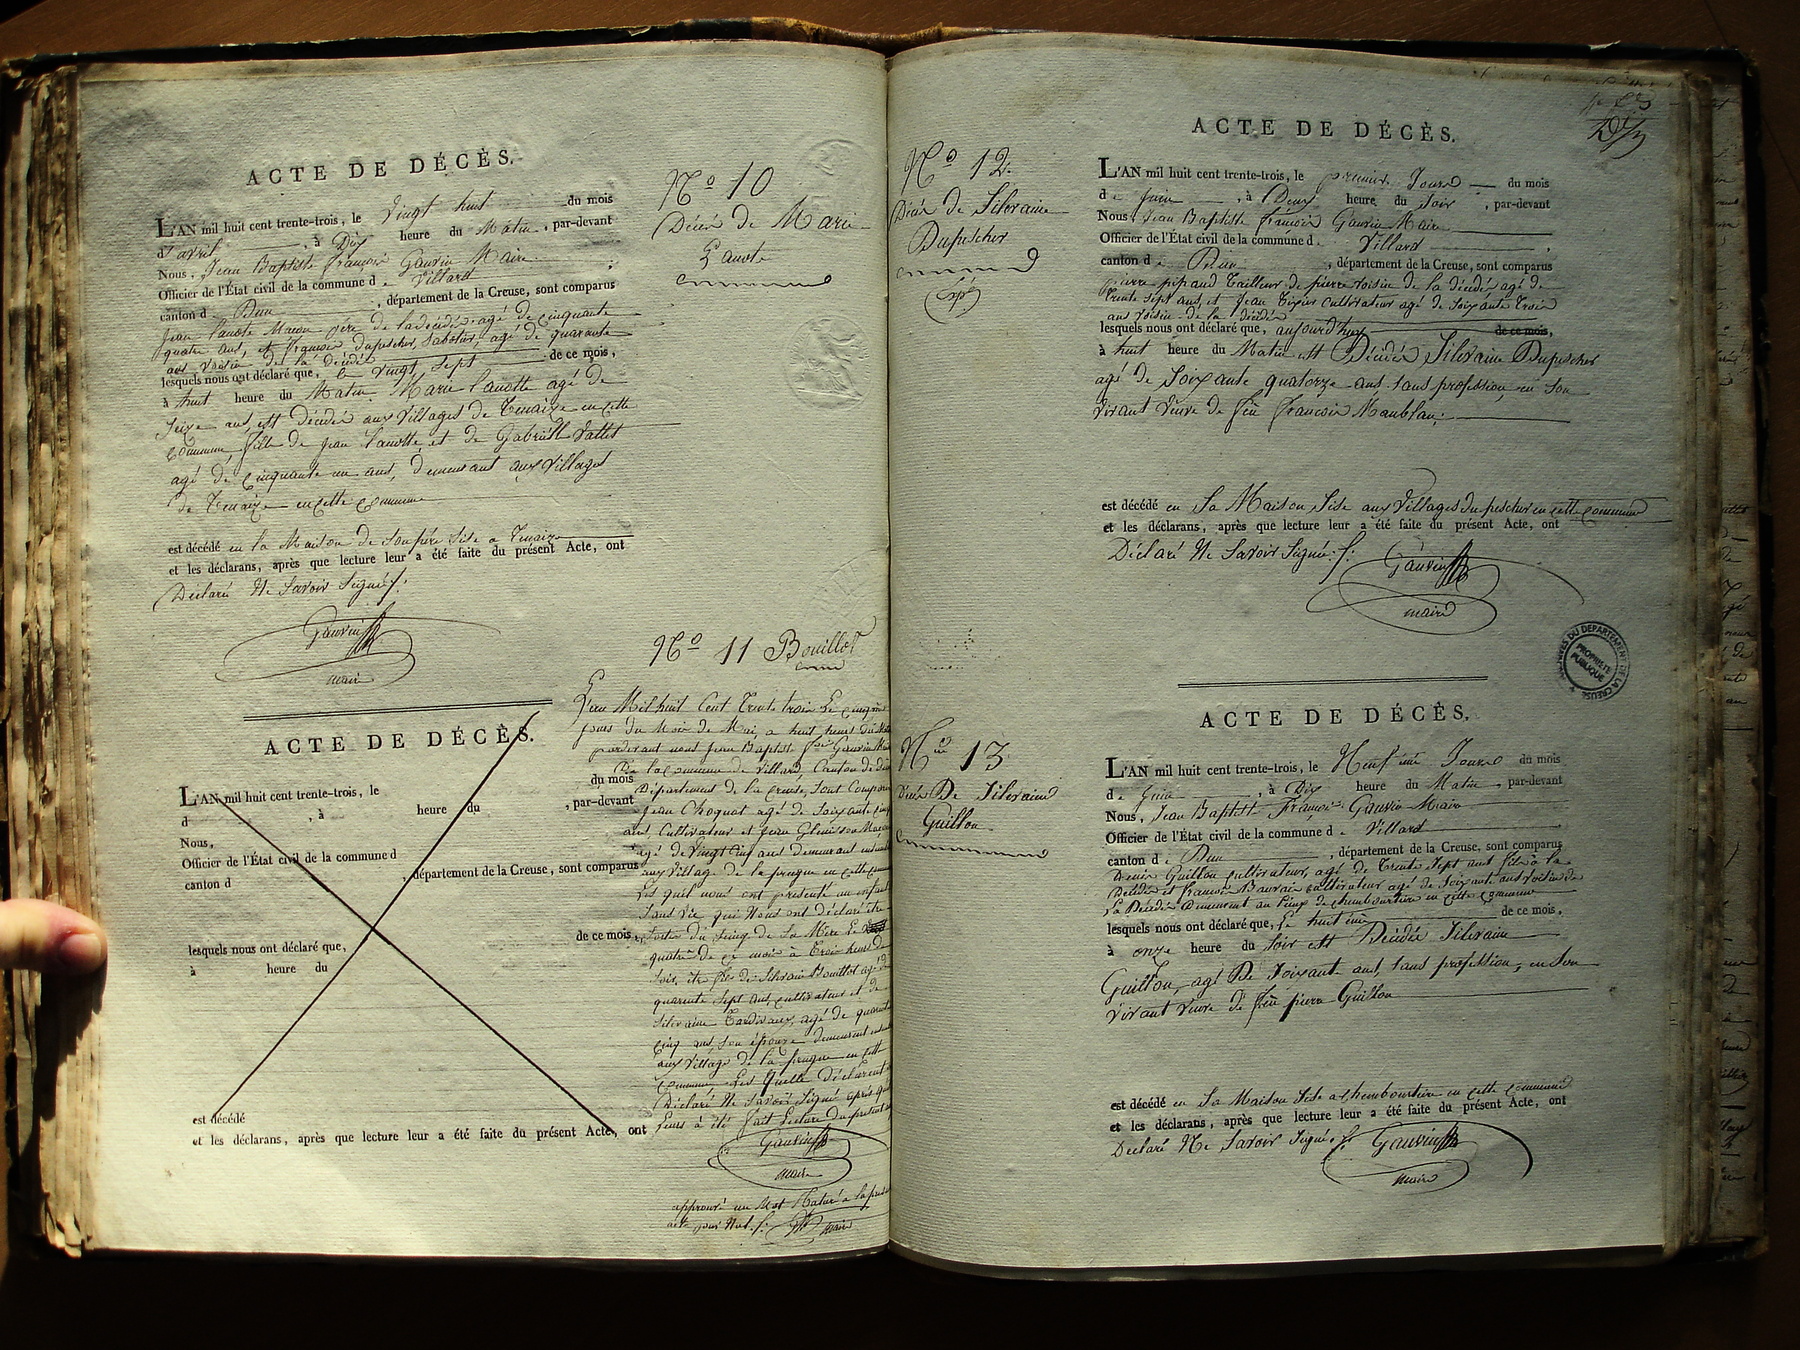 ACTE DE DÉCÈS.
L'AN mil huit cent trente-trois, le vingt huit du mois
d'avril, à Dix heure du Matin, par-devant
Nous, Jean Baptiste françois Gauvin Maire
Officier de l'État civil de la commune de Villard
canton de Dun, département de la Creuse, sont comparus
Jean lanote Macon père de la décédé agé de cinquante
quatre ans, et françois dupescher, Sabotier, agé de quarante
ans voisin de la décédé
lesquels nous ont déclaré que, le vingt, sept de ce mois,
à huit heure du Matin Marie lanotte agé de
seize ans, est décédé aux Villages de en cette
commune fille de jean lanotte et de Gabriell Vallet
agé de cinquante un ans, demeurant aux Villages
de en cette commune
est décédé en la Maison de son père Sise a
et les déclarans, après que lecture leur a été faite du présent Acte, ont
Déclaré Ne Savoir Signé f.
Gauvin
maire
Nº 10
Décès de Marie
Lanote
Nº 11 Bouillot
L'an Mil huit Cent Trente trois Le cinq
jours du Mois de Mai, a huit heure du
pardevant nous Jean Baptist Gauvin
De la Commune de Villard, Canton de dun
Département de la Creuse, Sont Comparu
Jean Choquat agé de Soixante cinq
ans, Cultivateur et jean Glenisson Macon
agé de vingt cinq ans demeurant
aux Village de la prugne en cette commune
Les quel nous ont présenté un enfant
Sans vie qui Nous ont Déclaré être
Sortie du Seing de Sa Mère Le
quatre de ce mois à Trois heure du
Soir, être fils de Silvain Bouillot agé de
quarente Sept ans, cultivateur et de
Silvaine Tardivaux, agé de quarente
cinq ans, Son épouse demeurant
aux Village de la prugne en cette
Commune Les quelle déclarent
Déclaré Ne Savoir Signé après que
Leurs à été fait Lecture du présent
Gauvin
maire
approuvé un Mot Raturé a la présente
acte pour Nul f. maire
ACTE DE DÉCÈS.
L'AN mil huit cent trente-trois, le du mois
d , à heure du , par-devant
Nous,
Officier de l'État civil de la commune d
canton d , département de la Creuse, sont comparus
lesquels nous ont déclaré que, de ce mois,
à heure du
est décédé
et les déclarans, après que lecture leur a été faite du présent Acte, ont
Nº 12
Décès de Silvaine
Dupescher
Expé
ACTE DE DÉCÈS.
L'AN mil huit cent trente-trois, le premier Jours du mois
de Juin, à Deux heure du Soir, par-devant
Nous, Jean Baptiste françois Gauvin Maire
Officier de l'État civil de la commune de Villard,
canton de Dun, département de la Creuse, sont comparus
pierre pipaud Tailleur de pierre voisin de la décédé agé de
trente Sept ans, et Jean Tixier cultivateur agé de Soixante Trois
ans voisin de la décédé
lesquels nous ont déclaré que, aujourd'huy de ce mois,
à huit heure du Matin est Décédée Silvaine Dupescher
agé de Soixante quatorze ans Sans profession, en Son
Vivant Veuve de feu françois Maublan;
est décédé en Sa Maison Sise aux Villages Dupescher en cette commune
et les déclarans, après que lecture leur a été faite du présent Acte, ont
Déclaré Ne Savoir Signé: f.
Gauvin
maire
ARCHIVES DU DEPARTEMENT DE LA CREUSE
PROPRIÉTÉ
PUBLIQUE
Nº 13
Décès De Silvaine
Guillon
ACTE DE DÉCÈS.
L'AN mil huit cent trente-trois, le Neuf ème Jours du mois
de Juin, à Dix heure du Matin, par-devant
Nous, Jean Baptist François Gauvin Maire
Officier de l'État civil de la commune de Villard
canton de Dun, département de la Creuse, sont comparus
Denis Guillon cultivateur, agé de trente Sept ans fils à la
Décédé et francois Bauvais cultivateur agé de Soixante ans voisin de
La Décédé Demeurant au lieux de chemboutiere en cette commune
lesquels nous ont déclaré que, Le huit ème de ce mois,
à onze heure du Soir est Décédée Silvaine
Guillon, agé De Soixante ans, Sans profession, en Son
vivant veuve de feu pierre Guillon
est décédé en Sa Maison Sise a chemboutiere en cette commune
et les déclarans, après que lecture leur a été faite du présent Acte, ont
Déclaré Ne Savoir Signé, f. Gauvin
maire